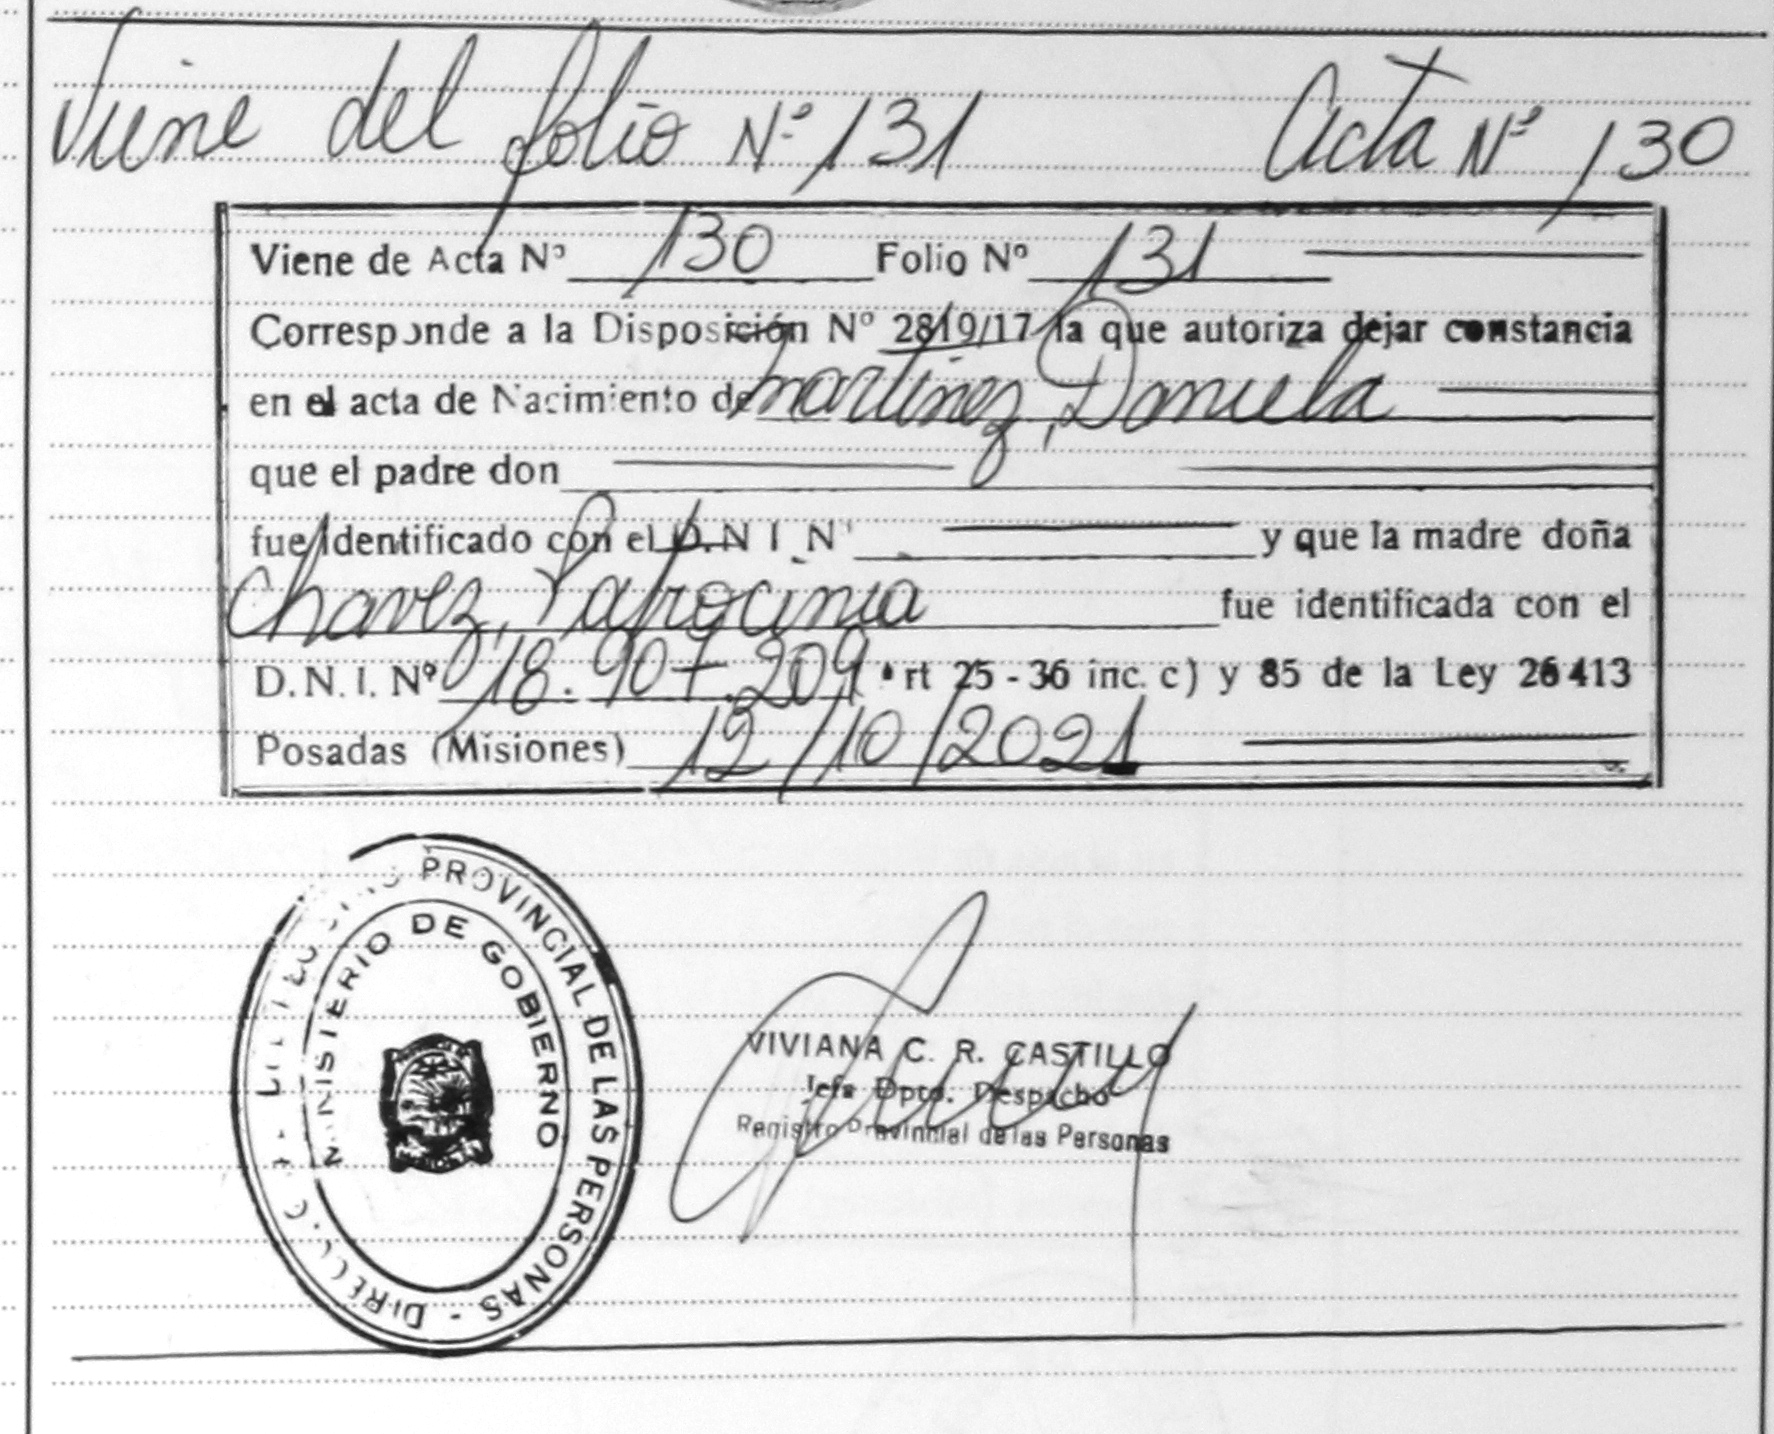 Viene del folio Nº 131 Acta Nº 130
Viene de Acta Nº 130 Folio Nº 131
Corresponde a la Disposición Nº 2819/17 la que autoriza dejar constancia
en el acta de Nacimiento de Martinez, Daniela
que el padre don
fue identificado con el D.N.I. Nº y que la madre doña
Chavez, Patrocinia fue identificada con el
D.N.I. Nº 18.907.209 Art 25 - 36 inc. c) y 85 de la Ley 26413
Posadas (Misiones) 12/10/2021
PROVINCIAL DE LAS PERSONAS -
MINISTERIO DE GOBIERNO
VIVIANA C. R. CASTILLO
Jefa Dpto. Despacho
Registro Provincial de las Personas